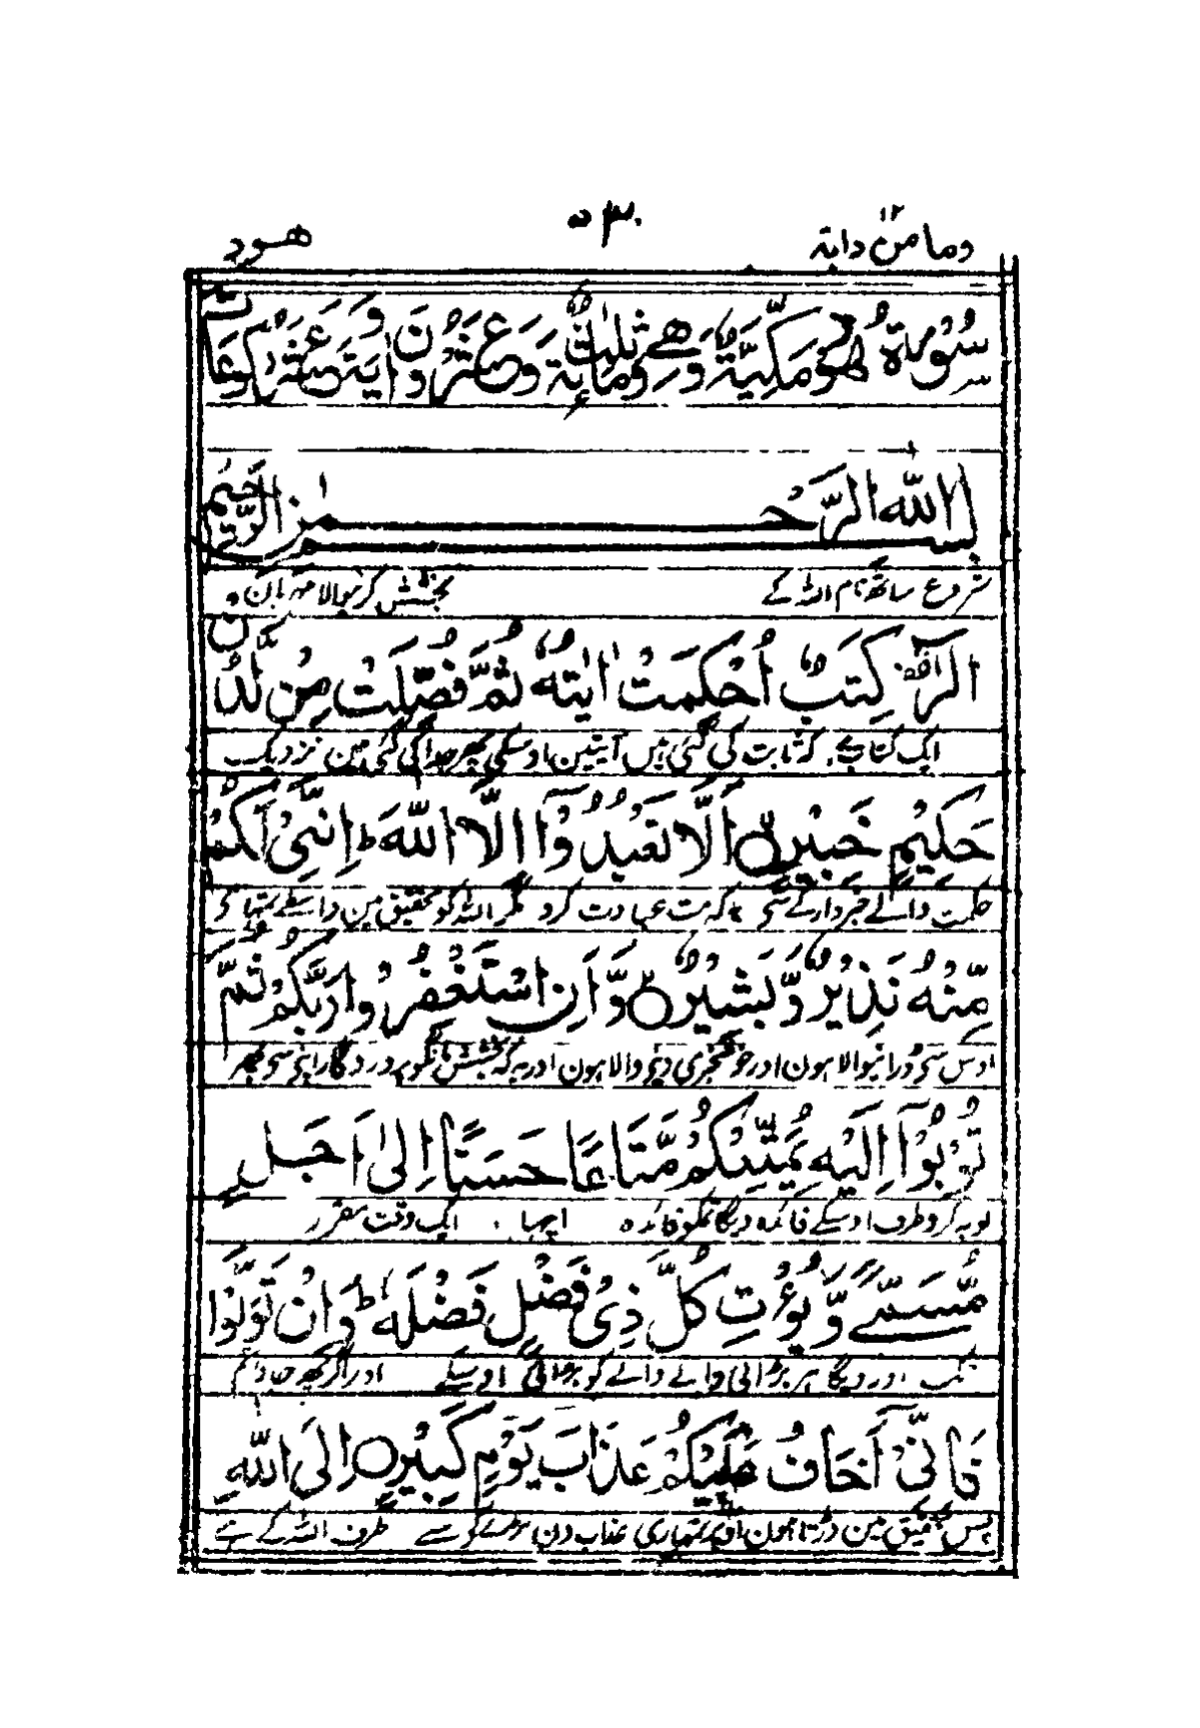 وما من دابة ١٢
٥٣٠
هود
سُوْرَةُ هُوْدٍ مَكِّيَّةٌ وَهِيَ مِائَةٌ وَّثَلٰثٌ وَّعِشْرُوْنَ اٰيَةً وَّعَشْرُ رُكُوْعَاتٍ
بِسْمِ اللّٰهِ الرَّحْمٰنِ الرَّحِيْمِ
شروع ساتھ نام اللہ کے بخشش کرنیوالا مہربان
الٓرٰ كِتٰبٌ اُحْكِمَتْ اٰيٰتُهٗ ثُمَّ فُصِّلَتْ مِنْ لَّدُنْ
ایک کتاب ہے کہ ثابت کی گئی ہیں آیتیں اوسکی پھر جدا کی گئی ہین نزدیک
حَكِيْمٍ خَبِيْرٍۙ اَلَّا تَعْبُدُوْٓا اِلَّا اللّٰهَؕ اِنَّنِيْ لَكُمْ
حکمت والے خبردار کے سی یہ کہ مت عبادت کرو مگر اللہ کو تحقیق مین واسطے تمہارے
مِّنْهُ نَذِيْرٌ وَّبَشِيْرٌۙ وَّاَنِ اسْتَغْفِرُوْا رَبَّكُمْ ثُمَّ
اوس سی ڈرانیوالا ہون اور خوشخبری دینے والا ہون اور یہ کہ بخشش مانگو پروردگار اپنے سی پھر
تُوْبُوْٓا اِلَيْهِ يُمَتِّعْكُمْ مَّتَاعًا حَسَنًا اِلٰٓى اَجَلٍ
توبہ کرو طرف اوسکے فائدہ دیگا تمکو فائدہ اچھا ایک وقت مقرر
مُّسَمًّى وَّيُؤْتِ كُلَّ ذِيْ فَضْلٍ فَضْلَهٗؕ وَاِنْ تَوَلَّوْا
تک اور دیگا ہر بڑائی والے والے کو بڑائی اوسکی اور اگر پھر جاؤ تم
فَاِنِّيْٓ اَخَافُ عَلَيْكُمْ عَذَابَ يَوْمٍ كَبِيْرٍ اِلَى اللّٰهِ
پس تحقیق مین ڈرتا ہون اوپر تمہاری عذاب دن بڑے کو سے طرف اللہ کے ہے